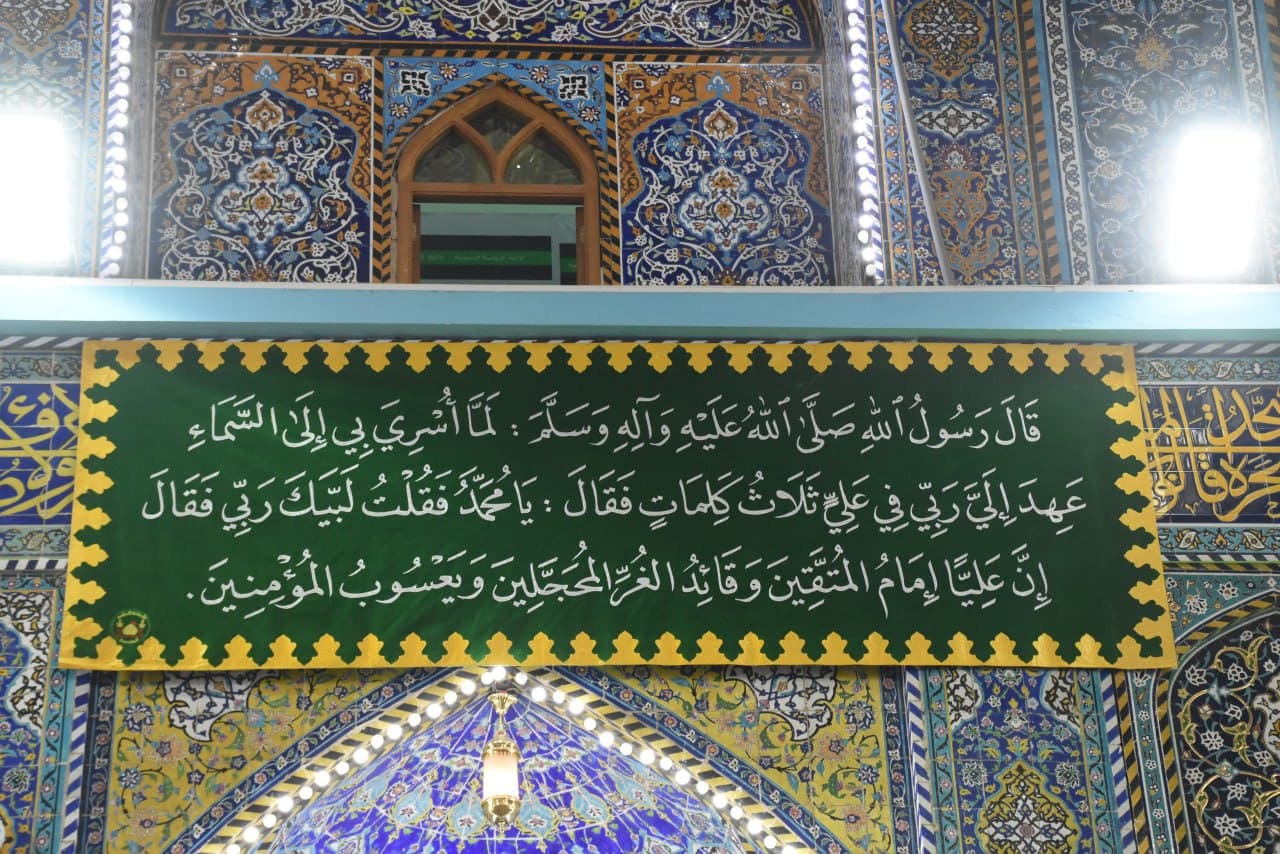 قَالَ رَسُولُ ٱللهِ صَلَّى ٱللهُ عَلَيْهِ وَآلِهِ وَسَلَّمَ : لَمَّا أُسْرِيَ بِي إِلَىٰ السَّمَاءِ
عَهِدَ إِلَيَّ رَبِّي فِي عَلِيٍّ ثَلَاثُ كَلِمَاتٍ فَقَالَ : يَا مُحَمَّدُ فَقُلْتُ لَبَّيْكَ رَبِّي فَقَالَ
إِنَّ عَلِيًّا إِمَامُ الْمُتَّقِينَ وَقَائِدُ الغُرِّ المُحَجَّلِينَ وَيَعْسُوبُ المُؤْمِنِينَ .